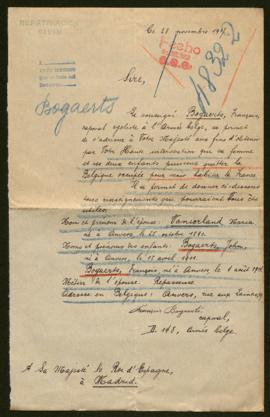 REPATRIADOS
CIVIL
Ce 28 novembre 1917.
Hecho
Bogaerts
Sire,
Le soussigné Bogaerts, François,
caporal cycliste à l'Armée belge, se permet
de s'adresser à Votre Majesté aux fins d'obtenir
par Votre Haute intervention que sa femme
et ses deux enfants puissent quitter la
Belgique occupée pour venir habiter la France.
Il se permet de donner ci-dessous
les renseignements qui pourraient Vous être
utiles:
Nom et prénom de l'épouse: Vanierland Maria
née à Anvers le 22 octobre 1890.
Noms et prénoms des enfants: Bogaerts, John,
né à Anvers, le 15 avril 1911.
Bogaerts, François né à Anvers le 1 août
Métier de l'épouse: Repasseuse
Adresse en Belgique: Anvers, rue aux
François Bogaerts,
caporal,
D. 148, Armée belge
A Sa Majesté le Roi d'Espagne,
à Madrid.